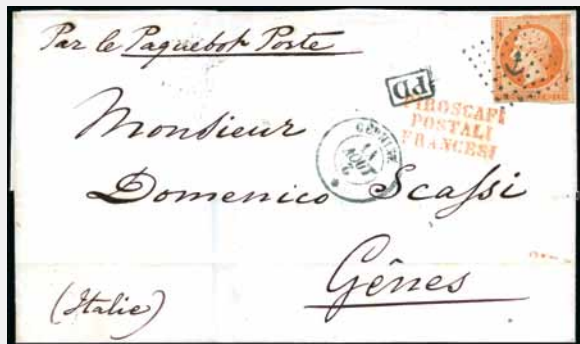 Par le Paquebot Poste
PD
PIROSCAFI
POSTALI
FRANCESI
Monsieur
AOUT
Domenico Scassi
Gênes
(Italie)